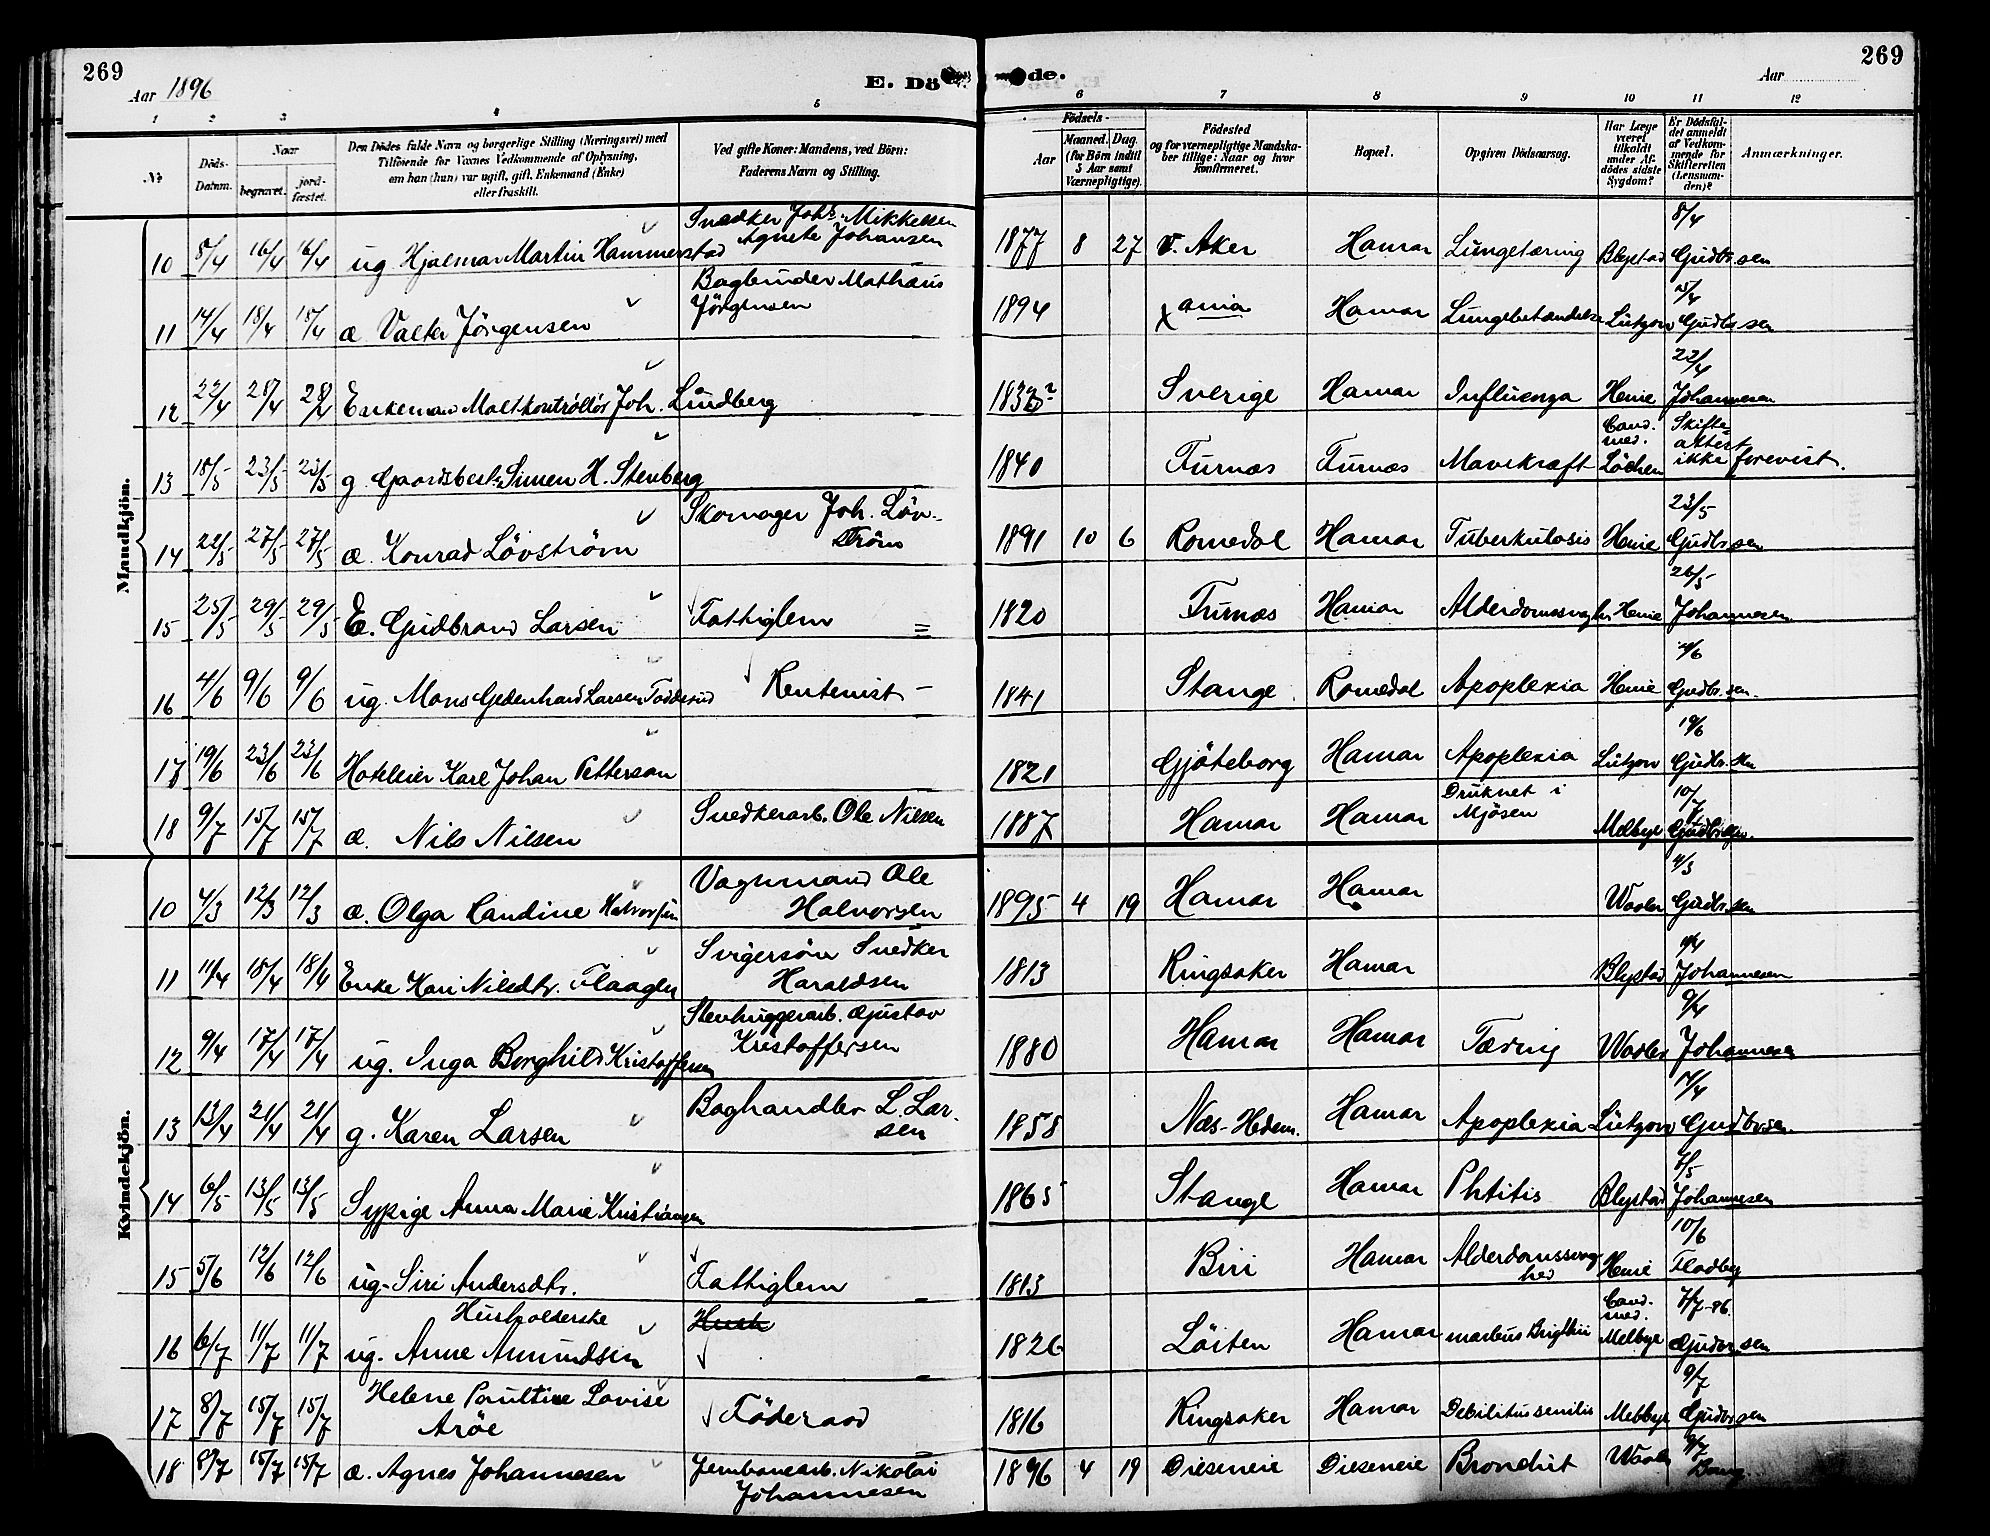 269
269
Aar 1896
E. Dö
de.
Aar
1 2 3 4 5 6 7 8 9 10 11 12
No
Döds-Datum.
Naar
begravet.
jordfæstet.
Den Dödes fulde Navn og borgerlige Stilling (Næringsvei) med
Tilföiende for Voxnes Vedkommende af Oplysning,
om han (hun) var ugift, gift, Enkemand (Enke)
eller fraskilt.
Ved gifte Koner: Mandens, ved Börn:
Faderens Navn og Stilling.
Födsels-
Aar
Maaned. Dag
(for Börn indtil 5 Aar samt Værnepligtige).
Födested
og for værnepligtige Mandskaber tillige: Naar og hvor Konfirmeret.
Bopæl.
Opgiven Dödsaarsag.
Har Læge været tilkaldt under Afdödes sidste Sygdom?
Er Dödsfaldet anmeldt af Vedkommende for Skifteretten (Lensmanden)?
Anmærkninger.
Mandkjön.
10 8/4 16/4 16/4 ug Hjalmar Martin Hammerstad Snedker Johs. Mikkelsen Agnete Johansen 1877 8 27 V. Aker Hamar Lungetæring Blystad 8/4 Gudbr.sen
11 14/4 18/4 18/4 æ Valter Jörgensen Bogbinder Mathæus Jörgensen 1894 Xania Hamar Lungebetændelse Lützow 15/4 Gudbr.sen
12 22/4 28/4 28/4 Enkemand Maltkontrollör Joh. Lundberg 1833? Sverige Hamar Influenza Heine 22/4 Johannesen
13 18/5 23/5 23/5 g. Gaardsbest. Simen H. Stenberg 1840 Furnæs Furnæs Mavekræft Cand. med. Löchen Skifteattest ikke forevist.
14 22/5 27/5 27/5 æ. Konrad Lövström Skomager Joh. Lövström 1891 10 6 Romedal Hamar Tuberkulosis Heine 23/5 Gudbr.sen
15 25/5 29/5 29/5 E. Gudbrand Larsen Fattiglem = 1820 Furnæs Hamar Alderdomssvagh. Heine 26/5 Johannesen
16 4/6 9/6 9/6 ug. Mons Gedenhard Larsen Todderud Rentenist 1841 Stange Romedal Apoplexia Heine 4/6 Gudbr.sen.
17 19/6 23/6 23/6 Hoteleier Karl Johan Petterson 1821 Gjöteborg Hamar Apoplexia Lützow 19/6 Gudbr.sen
18 9/7 15/7 15/7 æ. Nils Nilsen Snedkerarb. Ole Nilsen 1887 Hamar Hamar Druknet i Mjösen Melbye 10/7 Gudbr.sen.
Kvindekjön.
10 4/3 12/3 12/3 æ. Olga Kandine Halvorsen Vognmand Ole Halvorsen 1895 4 19 Hamar Hamar Waaler 4/3 Gudbr.sen
11 11/4 18/4 18/4 Enke Kari Nilsdtr. Flaagler Svigersön Snedker Haraldsen 1813 Ringsaker Hamar Blystad 11/4 Johannesen
12 9/4 17/4 17/4 ug. Inga Borghild Kristoffersen Stenhuggerarb. Gustav Kristoffersen 1880 Hamar Hamar Tæring Waaler 9/4 Johannesen
13 13/4 21/4 21/4 g. Karen Larsen Boghandler L. Larsen 1858 Næs-Hedem. Hamar Apoplexia Lützow 14/4 Gudbrsen.
14 6/5 13/5 13/5 Sypige Anna Marie Kristiansen 1865 Stange Hamar Phtitis Blystad 7/5 Johannesen
15 5/6 12/6 12/6 ug. Siri Andersdtr. Fattiglem 1813 Biri Hamar Alderdomssvaghed Heine 10/6 Fladby
16 6/7 11/7 11/7 ug. Husholderske Anne Amundsen Hush 1826 Löiten Hamar morbus Brigthii Cand. med. Melbye 7/7-96. Gudbr.sen
17 8/7 15/7 15/7 Helene Paultine Lovise Aröe Föderaad 1816 Ringsaker Hamar Debilitus senilis Melbye 9/7 Gudbr.sen
18 8/7 15/7 15/7 æ. Agnes Johannesen Jernbanearb. Nikolai Johannesen 1896 4 19 Dieseneie Dieseneie Bronchit Waaler 9/7